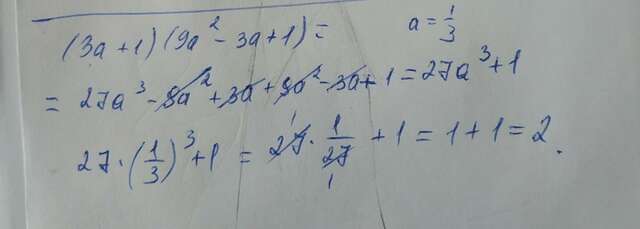 (3a+1)(9a²-3a+1)= a=1/3
= 27a³-9a²+3a+9a²-3a+1=27a³+1
27·(1/3)³+1 = 27·1/27+1=1+1=2.